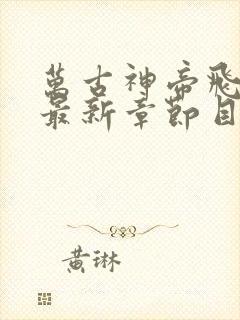 萬古神帝飛
最新章節目
黃琳